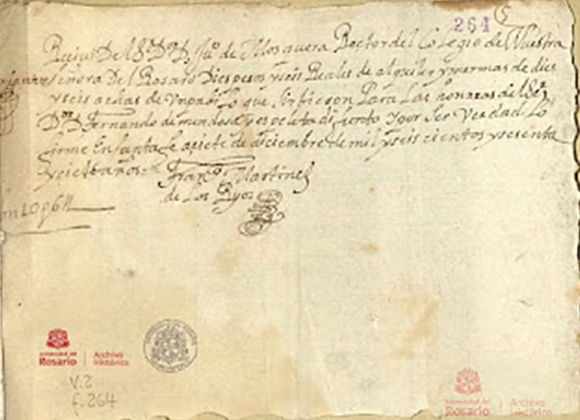 264
Reciui Del Sr. Dr. D. Juº de Mosquera Rector del Colegio de Nuestra
señora Del Rosario Diez pesos y seis Reales de alquiler y mermas de diez
y seis achas de Vn pabilo que sirbieron Para Las honrras del Sr.
D. Fernando de mendosa y espeleta difunto y por ser Verdad Lo
firme En santa fe a siete de diciembre de mil y seis cientos y sesenta
y años
Franco. Martines
de Los Reyes
Universidad del
Rosario
Archivo
Histórico
V.2
f.264
Universidad del
Rosario
Archivo
Histórico